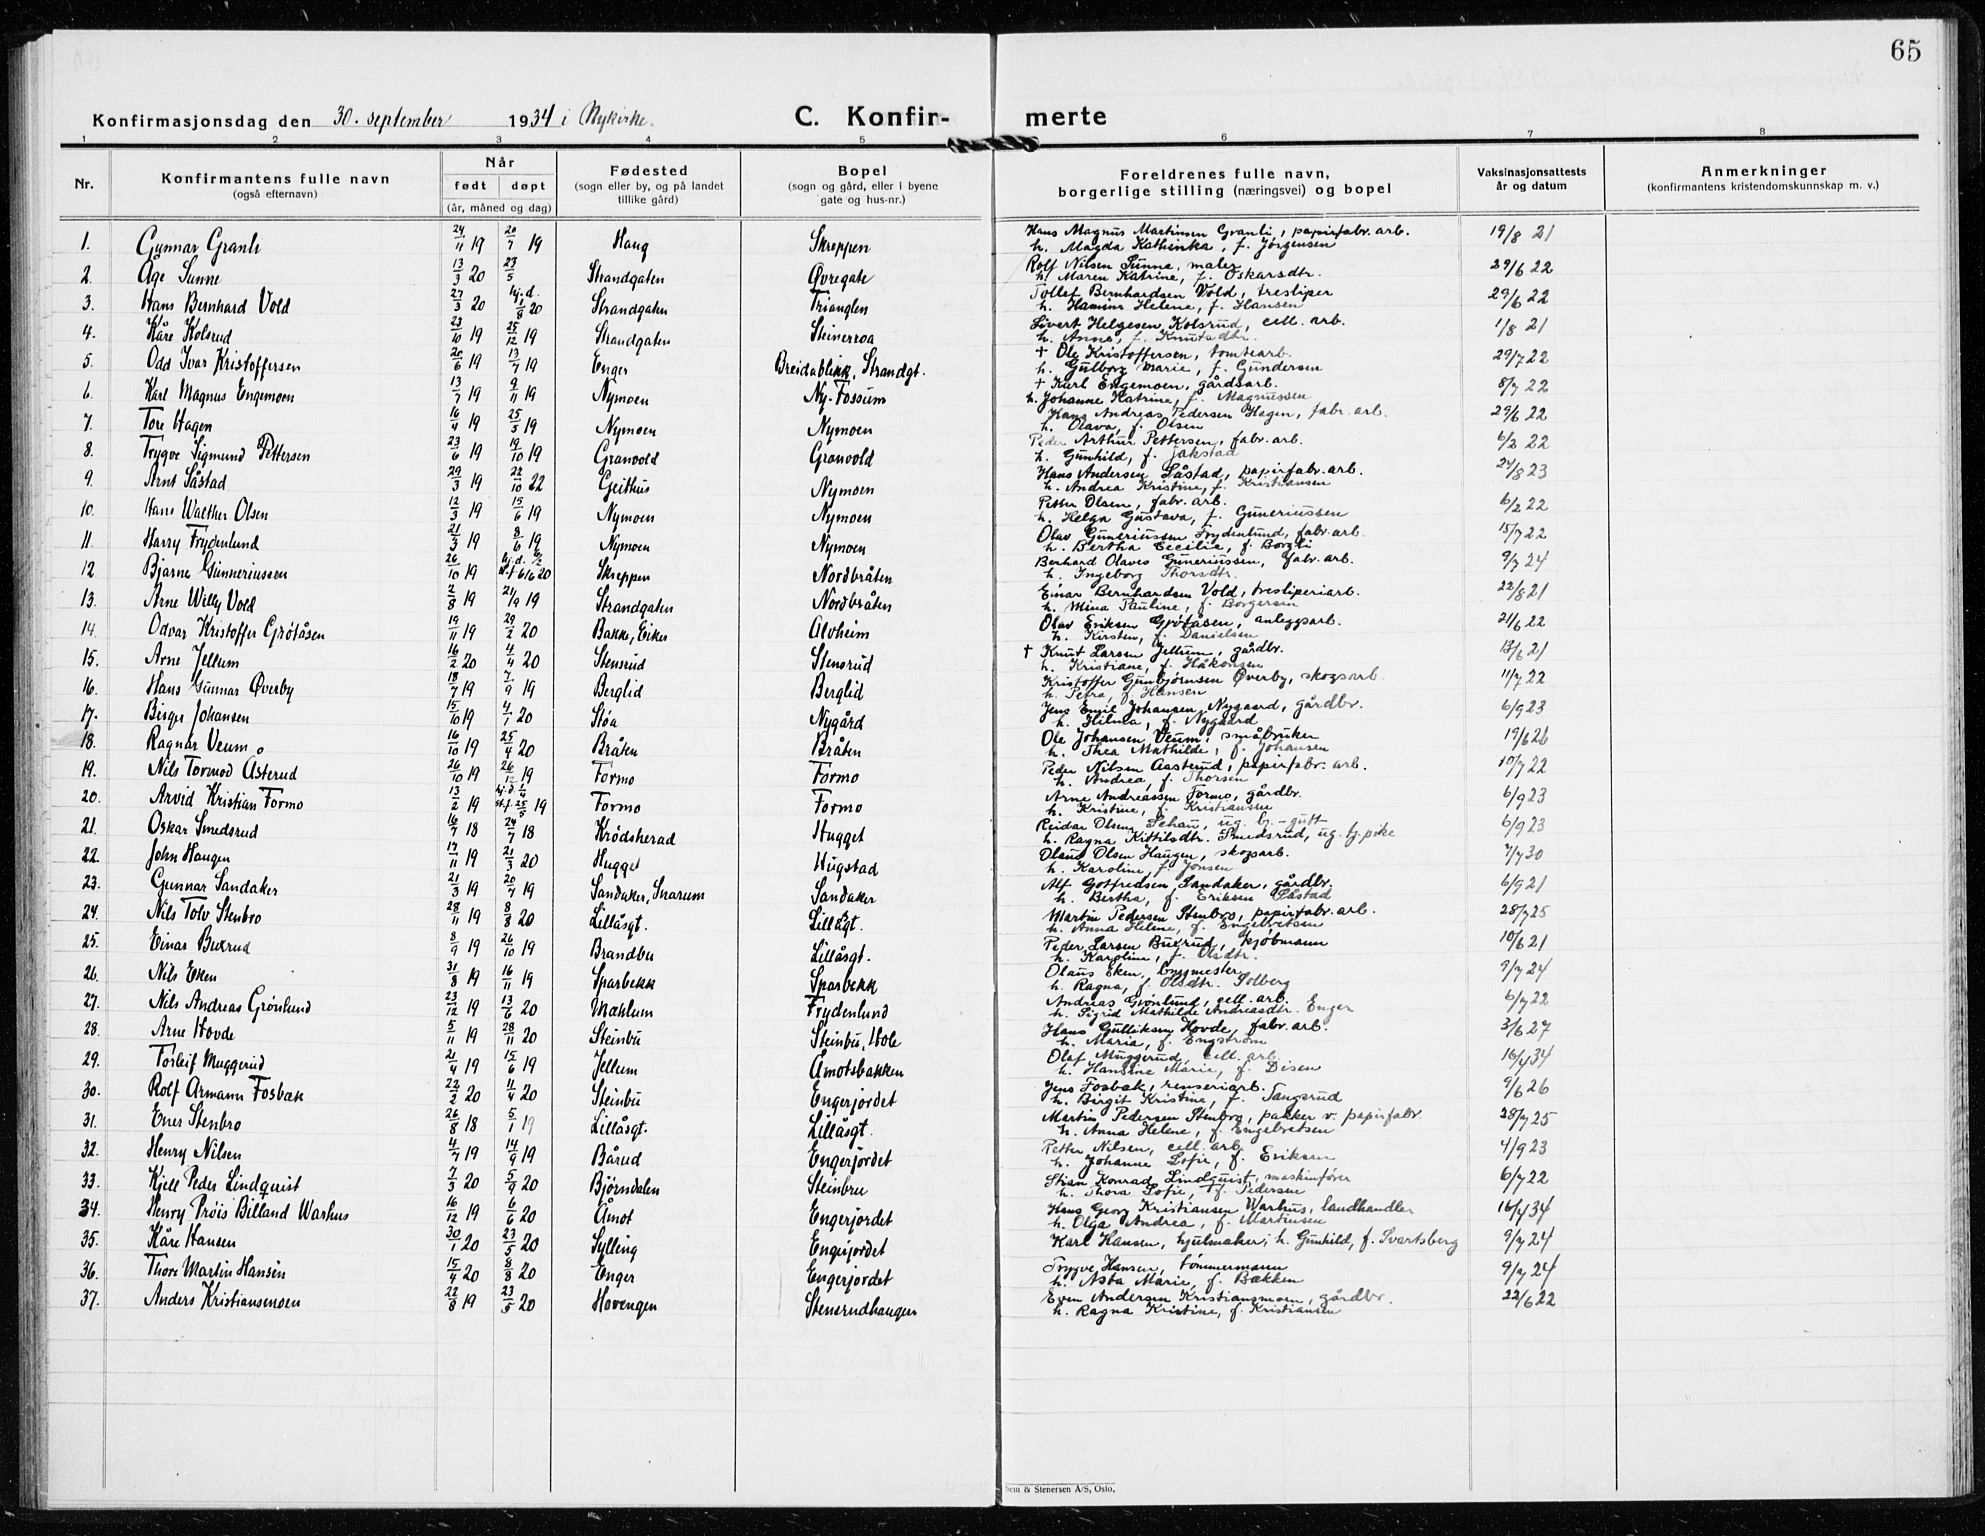 65
Konfirmasjonsdag den 30. september 1934 i Nykirke. C. Konfir- merte
1 2 3 4 5 6 7 8
Nr. Konfirmantens fulle navn (også efternavn) Når født døpt (år, måned og dag) Fødested (sogn eller by, og på landet tillike gård) Bopel (sogn og gård, eller i byene gate og hus-nr.) Foreldrenes fulle navn, borgerlige stilling (næringsvei) og bopel Vaksinasjonsattests år og datum Anmerkninger (konfirmantens kristendomskunnskap m. v.)
1. Gunnar Granli 24/11 19 20/7 19 Haug Skreppen Hans Magnus Martinsen Granli, papirfabr. arb. 19/8 21
h. Magda Kathinka, f. Jørgensen
2. Åge Sunne 13/3 20 23/5 Strandgaten Øvregate Rolf Nilsen Sunne, maler 29/6 22
h. Maren Katrine, f. Oskarsdtr.
3. Hans Bernhard Vold 27/3 20 hj.d. 1/8 20 Strandgaten Trianglen Tollef Bernhardsen Vold, tresliper 29/6 22
h. Hamine Helene, f. Hansen
4. Kåre Kolsrud 23/10 19 25/12 19 Strandgaten Steinerroa Sivert Helgesen Kolsrud, cell. arb. 1/8 21
h. Anne, f. Knutsdtr.
5. Odd Ivar Kristoffersen 20/6 19 13/7 19 Enger Breidablikk, Strandgt. † Ole Kristoffersen, tomtearb. 29/7 22
h. Gulborg Marie, f. Gundersen
6. Karl Magnus Engemoen 13/7 19 9/11 19 Nymoen Ny-Fossum † Karl Engemoen, gårdsarb. 8/7 22
h. Johanne Katrine, f. Magnussen
7. Tore Hagen 16/4 19 25/5 19 Nymoen Nymoen Hans Andreas Pedersen Hagen, fabr. arb. 29/6 22
h. Olava, f. Olsen
8. Trygve Sigmund Pettersen 23/6 19 19/10 19 Granvold Granvold Peder Arthur Pettersen, fabr. arb. 6/2 22
h. Gunhild, f. Jakstad
9. Arnt Såstad 29/3 19 22/10 22 Geithus Nymoen Hans Andersen Såstad, papirfabr. arb. 24/8 23
h. Andrea Kristine, f. Kristiansen
10. Hans Walther Olsen 12/3 19 15/6 19 Nymoen Nymoen Petter Olsen, fabr. arb. 6/2 22
h. Helga Gustava, f. Guneriussen
11. Harry Frydenlund 21/3 19 8/6 19 Nymoen Nymoen Olav Guneriussen Frydenlund, fabr. arb. 15/7 22
h. Bertha Cecilie, f. Borgli
12 Bjarne Gunneriussen 26/10 19 hj.d. 6/2 st.f. 6/6 20 Skreppen Nordbråten Berhard Olaves Guneriussen, fabr. arb. 9/7 24
h. Ingeborg Thorsdtr.
13. Arne Willy Vold 2/8 19 21/9 19 Strandgaten Nordbråten Einar Bernhardsen Vold, tresliperiarb. 22/8 21
h. Mina Pauline, f. Borgersen
14. Odvar Kristoffer Grøtåsen 19/11 19 29/2 20 Bakke, Eiker Alvheim Olav Eriksen Grøtåsen, anleggsarb. 21/6 22
h. Kirsten, f. Danielsen
15. Arne Jellum 16/2 20 4/4 20 Stensrud Stensrud † Knut Larsen Jellum, gårdbr. 17/6 21
h. Kristiane, f. Håkonsen
16. Hans Gunnar Øverby 18/7 19 7/9 19 Berglid Berglid Kristoffer Gunbjørnsen Øverby, skogsarb. 11/7 22
h. Petra, f. Hansen
17. Birger Johansen 15/10 19 4/1 20 Støa Nygård Jens Emil Johansen Nygaard, gårdbr. 6/9 23
h. Hilma, f. Nygaard
18. Ragnar Veum 16/10 19 25/4 20 Bråten Bråten Ole Johansen Veum, småbruker 19/6 26
h. Thea Mathilde, f. Johansen
19. Nils Tormod Åsterud 26/10 19 26/12 19 Formo Formo Peder Nilsen Aasterud, papirfabr. arb. 10/7 22
h. Andrea, f. Thorsen
20. Arvid Kristian Formo 13/2 19 hj.d. 1/4 st.f. 25/5 19 Formo Formo Arne Andreassen Formo, gårdbr. 6/9 23
h. Kristine, f. Kristiansen
21. Oskar Smedsrud 16/7 18 24/7 18 Krødsherad Hugget Reidar Olsen Schau, ug. bj.-gutt 6/9 23
h. Ragna Kittilsdtr. Smedsrud, ug. bj. pike
22. John Haugen 17/11 19 21/3 20 Hugget Hugstad Olaus Olsen Haugen, skogsarb. 7/7 30
h. Karoline, f. Jonsen
23. Gunnar Sandaker 21/3 19 20/7 19 Sandaker, Snarum Sandaker Alf Gotfredsen Sandaker, gårdbr. 6/9 21
h. Bertha, f. Eriksen Såstad
24. Nils Tolv Stenbro 28/11 19 8/8 20 Lillåsgt. Lillågt. Martin Pedersen Stenbro, papirfabr. arb. 28/7 25
h. Anna Helene, f. Engebretsen
25. Einar Buxrud 8/9 19 26/10 19 Brandbu Lillåsgt. Peder Larsen Buxrud, kjøbmann 10/6 21
h. Karoline, f. Olsdtr.
26. Nils Eken 31/8 19 16/11 19 Sparbekk Sparbekk Olaus Eken, byggmester 9/7 24
h. Ragna, f. Olsdtr. Solberg
27. Nils Andreas Grønlund 23/12 19 13/6 20 Mæhlum Frydenlund Andreas Grønlund, cell. arb. 6/7 22
h. Sigrid Mathilde Andreasdtr. Enger
28. Arne Hovde 5/11 19 28/11 20 Steinbu Steinbu, Hole Hans Gulliksen Hovde, fabr. arb. 3/6 27
h. Maria, f. Engstrøm
29. Torleif Muggerud 21/4 19 15/6 19 Jellum Åmotsbakken Olaf Muggerud, cell. arb. 16/4 34
h. Hansine Marie, f. Disen
30. Rolf Armann Fosbak 22/2 20 11/4 20 Steinbu Engerjordet Jens Fosbak, renseriarb. 9/6 26
h. Birgit Kristine, f. Tangsrud
31. Ener Stenbro 26/8 18 5/1 19 Lillåsgt. Lillåsgt. Martin Pedersen Stenbro, pakker v. papirfabr. 28/7 25
h. Anna Helene, f. Engebretsen
32. Henry Nilsen 4/7 19 14/9 19 Bårud Engerjordet Petter Nilsen, cell. arb. 4/9 23
h. Johanne Sofie, f. Eriksen
33. Kjell Peder Lindquist 7/3 20 5/9 20 Bjørndalen Steinbru Stian Konrad Lindquist, maskinfører 6/7 22
h. Thora Sofie, f. Pedersen
34. Henry Prøis Billand Warhus 16/12 19 6/6 20 Åmot Engerjordet Hans Georg Kristiansen Warhus, landhandler 16/4 34
h. Olga Andrea, f. Martinsen
35. Kåre Hansen 30/1 20 23/5 20 Sylling Engerjordet Karl Hansen, hjulmaker, h. Gunhild, f. Svartsberg 9/7 24
36. Thore Martin Hansen 15/4 20 8/8 20 Enger Engerjordet Trygve Hansen, tømmermann 9/7 24
h. Asta Marie, f. Bakken
37. Anders Kristiansmoen 22/8 19 23/5 20 Hovengen Stensrudhaugen Even Andersen Kristiansmoen, gårdbr. 22/6 22
h. Ragna Kristine, f. Kristiansen
Sem & Stenersen A/S, Oslo.